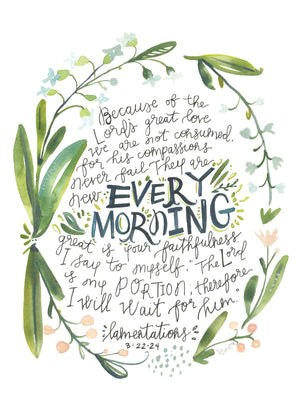 Because of the
Lord's great love
we are not consumed,
for his compassions
never fail. They are
new
EVERY
MORNING
great is your faithfulness
I say to myself. "The Lord
is my PORTION; therefore
I will wait for him.
lamentations
3:22-24